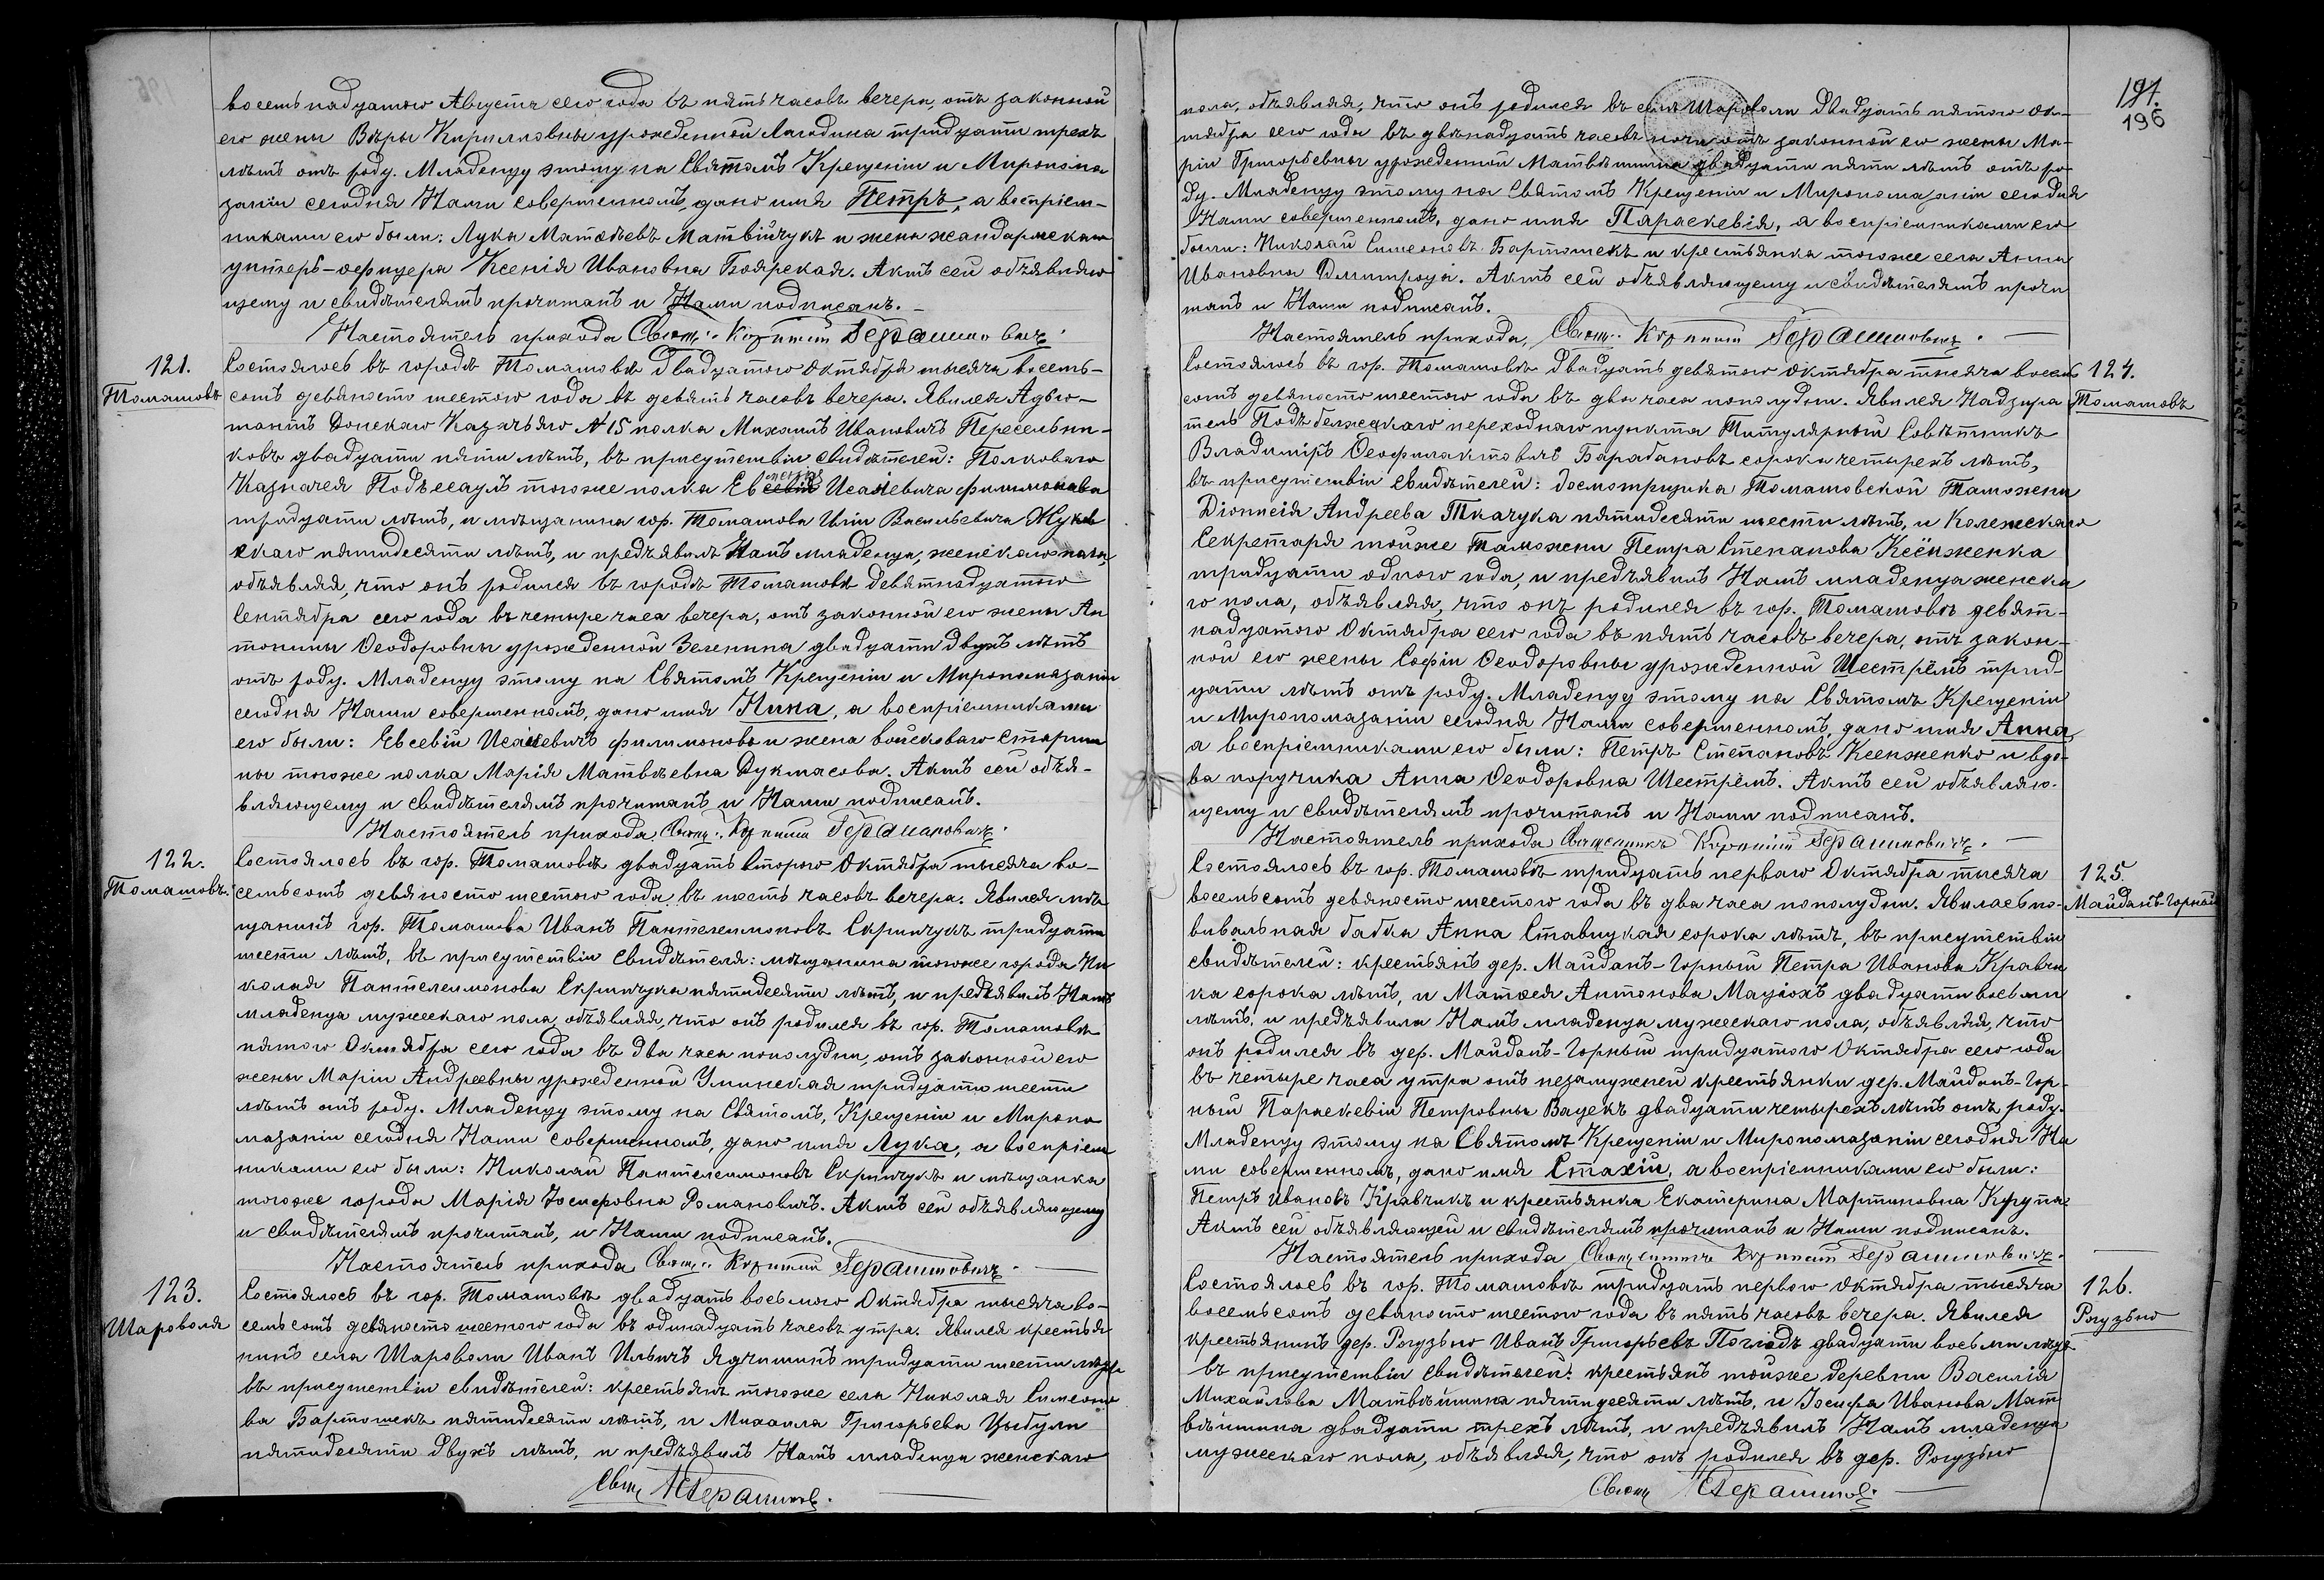 восемнадцатого Августа сего года въ пять часовъ вечера, отъ законной
его жены Вѣры Кирилловны урожденной Лагодина тридцати трехъ
лѣтъ отъ роду. Младенцу этому на Святомъ Крещеніи и Миропома
заніи сегодня Нами совершенномъ, дано имя Петръ, а воспріем-
никами его были: Лука Матѳѣевъ Матвійчукъ и жена жандармскаго
унтеръ-офицера Ксенія Ивановна Боярская. Актъ сей объявляю
щему и свидѣтелямъ прочитанъ и Нами подписанъ.
Настоятель прихода Свящ: Корнилій Герашимовичъ.
121.
Томашовъ
Состоялось въ городѣ Томашовѣ двадцатого Октября тысяча восемь-
сотъ девяносто шестого года въ девять часовъ вечера. Явился Адъю-
тантъ Донскаго Казачьяго № 15 полка Михаилъ Ивановичъ Пересельни-
ковъ двадцати пяти лѣтъ, въ присутствіи свидѣтелей: Полковаго
Казначея Подъесаулъ тогоже полка Исаіевича Филимонова
тридцати лѣтъ, и мѣщанина гор. Томашова Иліи Васильевича Жуков
скаго пятидесяти лѣтъ, и предъявилъ Намъ младенца, женскаго пола,
объявляя, что онъ родился въ городѣ Томашовѣ девятнадцатого
Сентября сего года въ четыре часа вечера, отъ законной его жены Ан
тонины Ѳеодоровны урожденной Зеленина двадцати двухъ лѣтъ
отъ роду. Младенцу этому на Святомъ Крещеніи и Миропомазаніи
сегодня Нами совершенномъ, дано имя Нина, а воспріемниками
его были: Евсевій Исаіевичъ Филимоновъ и жена войсковаго старши
ны тогоже полка Марія Матвѣевна Дукмасова. Актъ сей объя-
вляющему и свидѣтелямъ прочитанъ и Нами подписанъ.
Настоятель прихода Свящ: Корнилій Герашимовичъ.
122.
Томашовъ.
Состоялось въ гор. Томашовѣ двадцать второго Октября тысяча во-
семьсотъ девяносто шестого года въ шесть часовъ вечера. Явился мѣ
щанинъ гор. Томашова Иванъ Пантелеимоновъ Скринчукъ тридцати
шести лѣтъ, въ присутствіи свидѣтеля: мѣщанина тогоже города Ни
колая Пантелеимонова Скринчука пятидесяти лѣтъ, и предъявилъ Намъ
младенца мужескаго пола, объявляя, что онъ родился въ гор. Томашовѣ
пятого Октября сего года въ два часа пополудни, отъ законной его
жены Маріи Андреевны урожденной Улинская тридцати шести
лѣтъ отъ роду. Младенцу этому на Святомъ, Крещеніи и Миропо
мазаніи сегодня Нами совершенномъ, дано имя Лука, а воспріем
никами его были: Николай Пантелеимоновъ Скринчукъ и мѣщанка
тогоже города Марія Іосифовна Романовичъ. Актъ сей объявляющему
и свидѣтелямъ прочитанъ, и Нами подписанъ.
Настоятель прихода Свящ: Корнилій Герашимовичъ.
123.
Шароволя
Состоялось въ гор. Томашовѣ двадцать восьмого Октября тысяча во-
семьсотъ девяносто шестого года въ одинадцать часовъ утра. Явился крестья
нинъ села Шароволи Иванъ Ильичъ Ядчишинъ тридцати шести лѣтъ
въ присутствіи свидѣтелей: крестьянъ тогоже села Николая Симеоно
ва Бартошекъ пятидесяти лѣтъ, и Михаила Григорьева Цыбули
пятидесяти двухъ лѣтъ, и предъявилъ Намъ младенца женскаго
Свящ
191.
196
пола, объявляя, что онъ родился въ селѣ Шароволи двадцать пятого Ок-
тября сего года въ двѣнадцать часовъ ночи отъ законной его жены Ма-
ріи Григорьевны урожденной Матвѣишина двадцати пяти лѣтъ отъ ро-
ду. Младенцу этому на Святомъ Крещеніи и Миропомазаніи сегодня
Нами совершенномъ, дано имя Параскевія, а воспріемниками его
были: Николай Симеоновъ Бартошекъ и крестьянка тогоже села Анна
Ивановна Дмитроца. Актъ сей объявляющему и свидѣтелямъ прочи
танъ и Нами подписанъ.
Настоятель прихода, Свящ: Корнилій Герашимовичъ.
124.
Томашовъ
Состоялось въ гор. Томашовѣ двадцать девятого Октября тысяча восемь
сотъ девяносто шестого года въ два часа пополудни. Явился Надзира
тель Подъ белжецкаго переходнаго пункта Титулярный Совѣтникъ
Владиміръ Ѳеофилактовичъ Барабановъ сорока четырехъ лѣтъ,
въ присутствіи свидѣтелей: досмотрщика Томашовской Таможни
Діонисія Андреева Ткачука пятидесяти шести лѣтъ, и Колежскаго
Секретаря тойже Таможни Петра Степанова Ксёнженка
тридцати одного года, и предъявилъ Намъ младенца женска
го пола, объявляя, что онъ родился въ гор. Томашовѣ девят-
надцатого Октября сего года въ пять часовъ вечера, отъ закон-
ной его жены Софіи Ѳеодоровны урожденной Шестрёмъ трид-
цати лѣтъ отъ роду. Младенцу этому на Святомъ Крещеніи
и Миропомазаніи сегодня Нами совершенномъ, дано имя Анна,
а воспріемниками его были: Петръ Степановъ Ксенженко и вдо-
ва поручика Анна Ѳеодоровна Шестрёмъ. Актъ сей объявляю-
щему и свидѣтелямъ прочитанъ и Нами подписанъ.
Настоятель прихода Священникъ Корнилій Герашимовичъ.
125.
Майданъ-Горный
Состоялось въ гор. Томашовѣ тридцать перваго Октября тысяча
восемьсотъ девяносто шестого года въ два часа пополудни. Явилась по-
вивальная бабка Анна Ставицкая сорока лѣтъ, въ присутствіи
свидѣтелей: крестьянъ дер. Майданъ-Горный Петра Иванова Кравчи
ка сорока лѣтъ, и Матѳея Антонова Маціохъ двадцати восьми
лѣтъ, и предъявила Намъ младенца мужескаго пола, объявляя, что
онъ родился въ дер. Майданъ-Горный тридцатого Октября сего года
въ четыре часа утра отъ незамужней крестьянки дер. Майданъ-Гор-
ный Параскевіи Петровны Вацекъ двадцати четырехъ лѣтъ отъ роду.
Младенцу этому на Святомъ Крещеніи и Миропомазаніи сегодня На
ми совершенномъ, дано имя Стахій, а воспріемниками его были:
Петръ Ивановъ Кравчикъ и крестьянка Екатерина Мартиновна Крупа.
Актъ сей объявляющей и свидѣтелямъ прочитанъ и Нами подписанъ.
Настоятель прихода Священникъ Корнилій Герашимовичъ.
126.
Рогузьно
Состоялось въ гор. Томашовѣ тридцать первого Октября тысяча
восемьсотъ девяносто шестого года въ пять часовъ вечера. Явился
крестьянинъ дер. Рогузьно Иванъ Григорьевъ двадцати восьми лѣтъ
въ присутствіи свидѣтелей: крестьянъ тойже деревни Василія
Михайлова Матвѣишина пятидесяти лѣтъ, и Іосифа Иванова Мат
вѣишина двадцати трехъ лѣтъ, и предъявилъ Намъ младенца
мужескаго пола, объявляя, что онъ родился въ дер. Рогузьно
Свящ